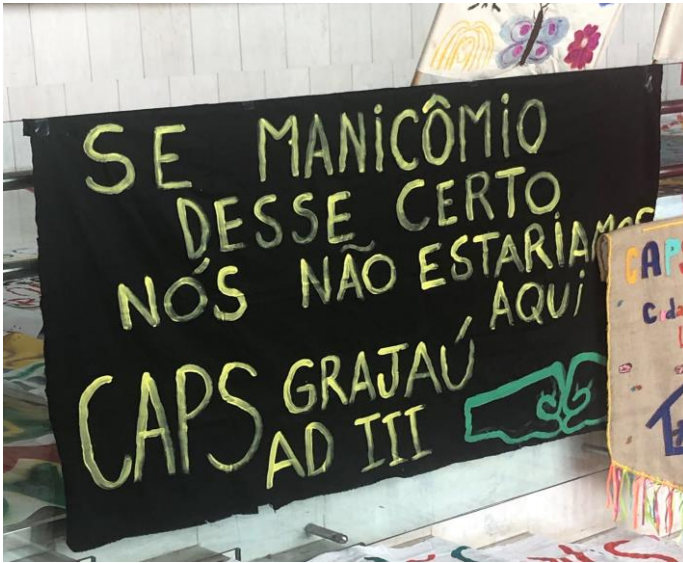 SE MANICÔMIO
DESSE CERTO
NÓS NÃO ESTARIAMOS
AQUI
CAPS GRAJAÚ
AD III
CAPS